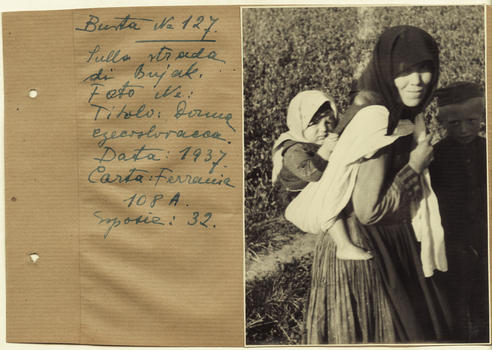 Busta Nº 127.
Sulla strada
di Bujak.
Foto Nº:
Titolo: Donna
czecoslovacca.
Data: 1937.
Carta: Ferrania
108 A.
Esposiz: 32.